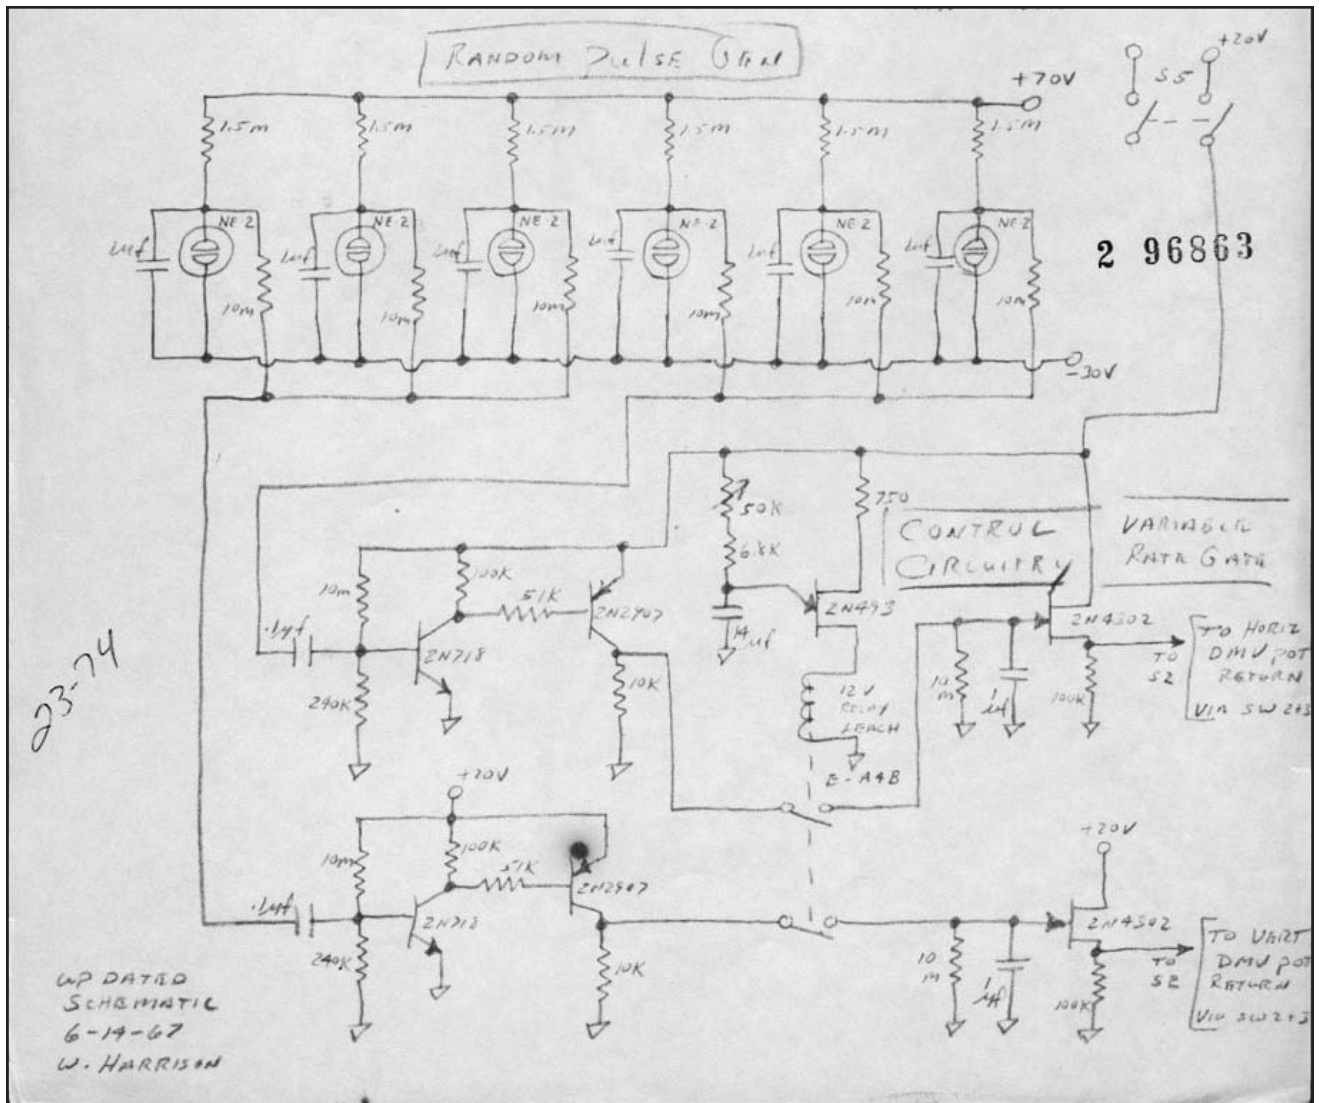 RANDOM PULSE GEN
+20V
S5
+70V
1.5m 1.5m 1.5m 1.5m 1.5m 1.5m
NE-2 NE-2 NE-2 NE-2 NE-2 NE-2
1uf 1uf 1uf 1uf 1uf 1uf
2 96863
10m 10m 10m 10m 10m 10m
-30V
50K
750
68K
CONTROL
CIRCUITRY
VARIABLE
RATE GATE
10m
100K
51K
2N2907
2N493
2N4302
.1uf
2N718
14uf
240K
10K
12V
RELAY
LEACH
E-A4B
10
m
1uf
100K
TO
S2
TO HORIZ
DMV POT
RETURN
VIA SW 2+3
23-74
+20V
10m
100K
51K
2N2907
.1uf
2N718
240K
10K
+20V
2N4302
10
m
1uf
100K
TO
S2
TO VERT
DMV POT
RETURN
VIA SW 2+3
UPDATED
SCHEMATIC
6-14-67
W. HARRISON